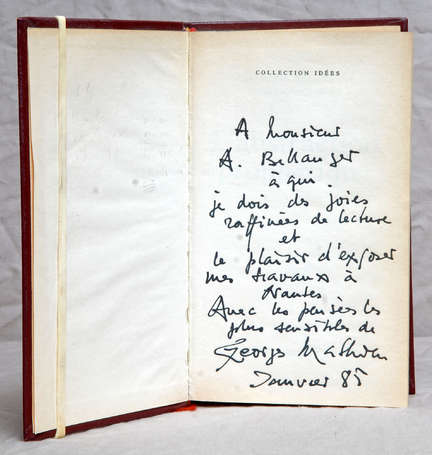 COLLECTION IDÉES
A Monsieur
A. Bellanger
à qui.
je dois des joies
raffinées de lecture
et
le plaisir d'exposer
mes travaux à
Nantes
Avec les pensées les
plus sensibles de
Georges Mathieu
Janvier 85